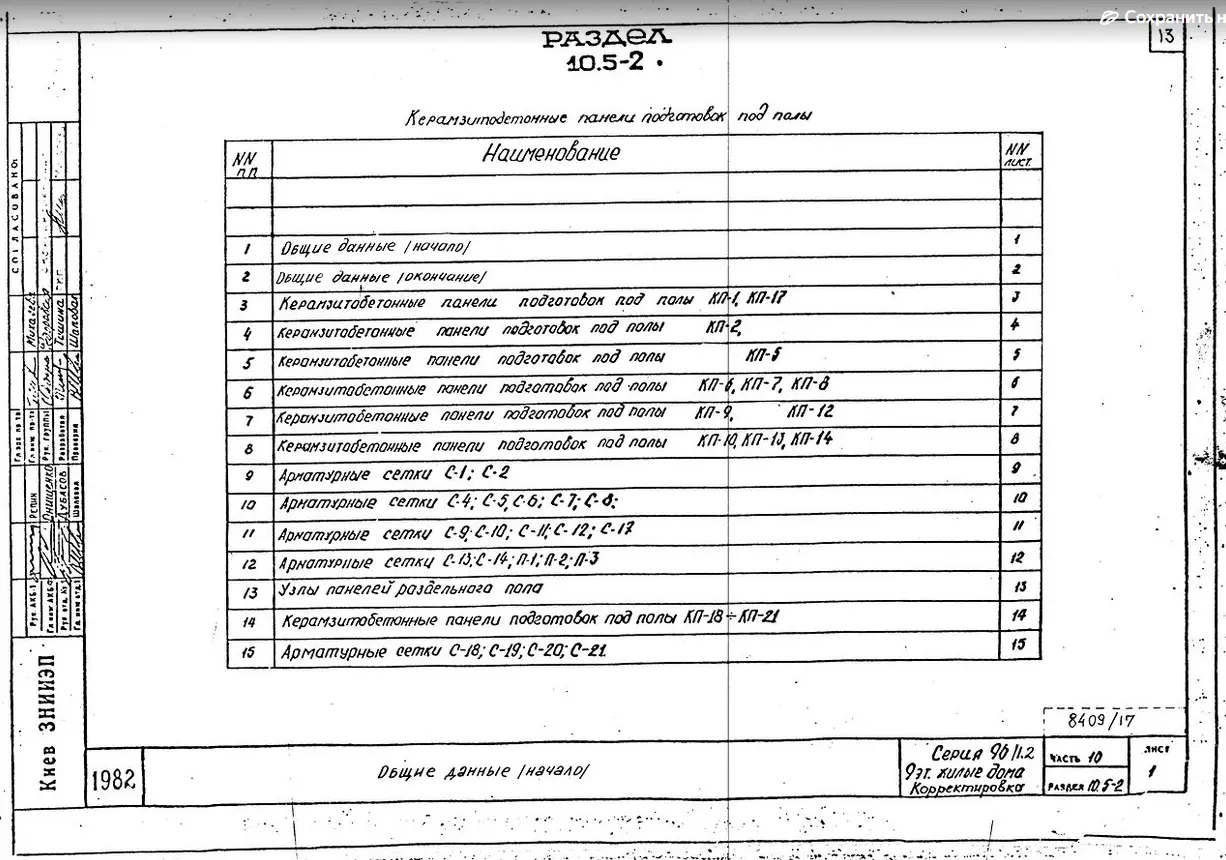 Сохранить н
13
РАЗДЕЛ
10.5-2.
Керамзитобетонные панели подготовок под полы
NN п.п. Наименование NN лист.
1 Общие данные /начало/ 1
2 Общие данные /окончание/ 2
3 Керамзитобетонные панели подготовок под полы КП-1, КП-17 3
4 Керамзитобетонные панели подготовок под полы КП-2, 4
5 Керамзитобетонные панели подготовок под полы КП-5 5
6 Керамзитобетонные панели подготовок под полы КП-6, КП-7, КП-8 6
7 Керамзитобетонные панели подготовок под полы КП-9, КП-12 7
8 Керамзитобетонные панели подготовок под полы КП-10, КП-13, КП-14 8
9 Арматурные сетки С-1; С-2 9
10 Арматурные сетки С-4; С-5, С-6; С-7; С-8; 10
11 Арматурные сетки С-9; С-10; С-11; С-12; С-17 11
12 Арматурные сетки С-13; С-14; П-1; П-2; П-3 12
13 Узлы панелей раздельного пола 13
14 Керамзитобетонные панели подготовок под полы КП-18÷КП-21 14
15 Арматурные сетки С-18; С-19; С-20; С-21. 15
СОГЛАСОВАНО:
Рук. группы
Разработал
Проверил
Тешина
Шаповал
Репин
Онищенко
Дубасов
Рук. АКБ-1
Киев ЗНИИЭП
8409/17
1982
Общие данные /начало/
Серия 96/1.2
9эт. жилые дома
Корректировка
Часть 10
Раздел 10.5-2
Лист
1